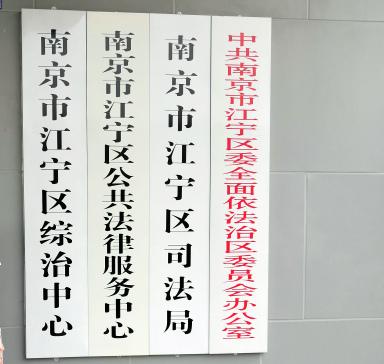 中共南京市江宁区委全面依法治区委员会办公室
南京市江宁区司法局
南京市江宁区公共法律服务中心
南京市江宁区综治中心